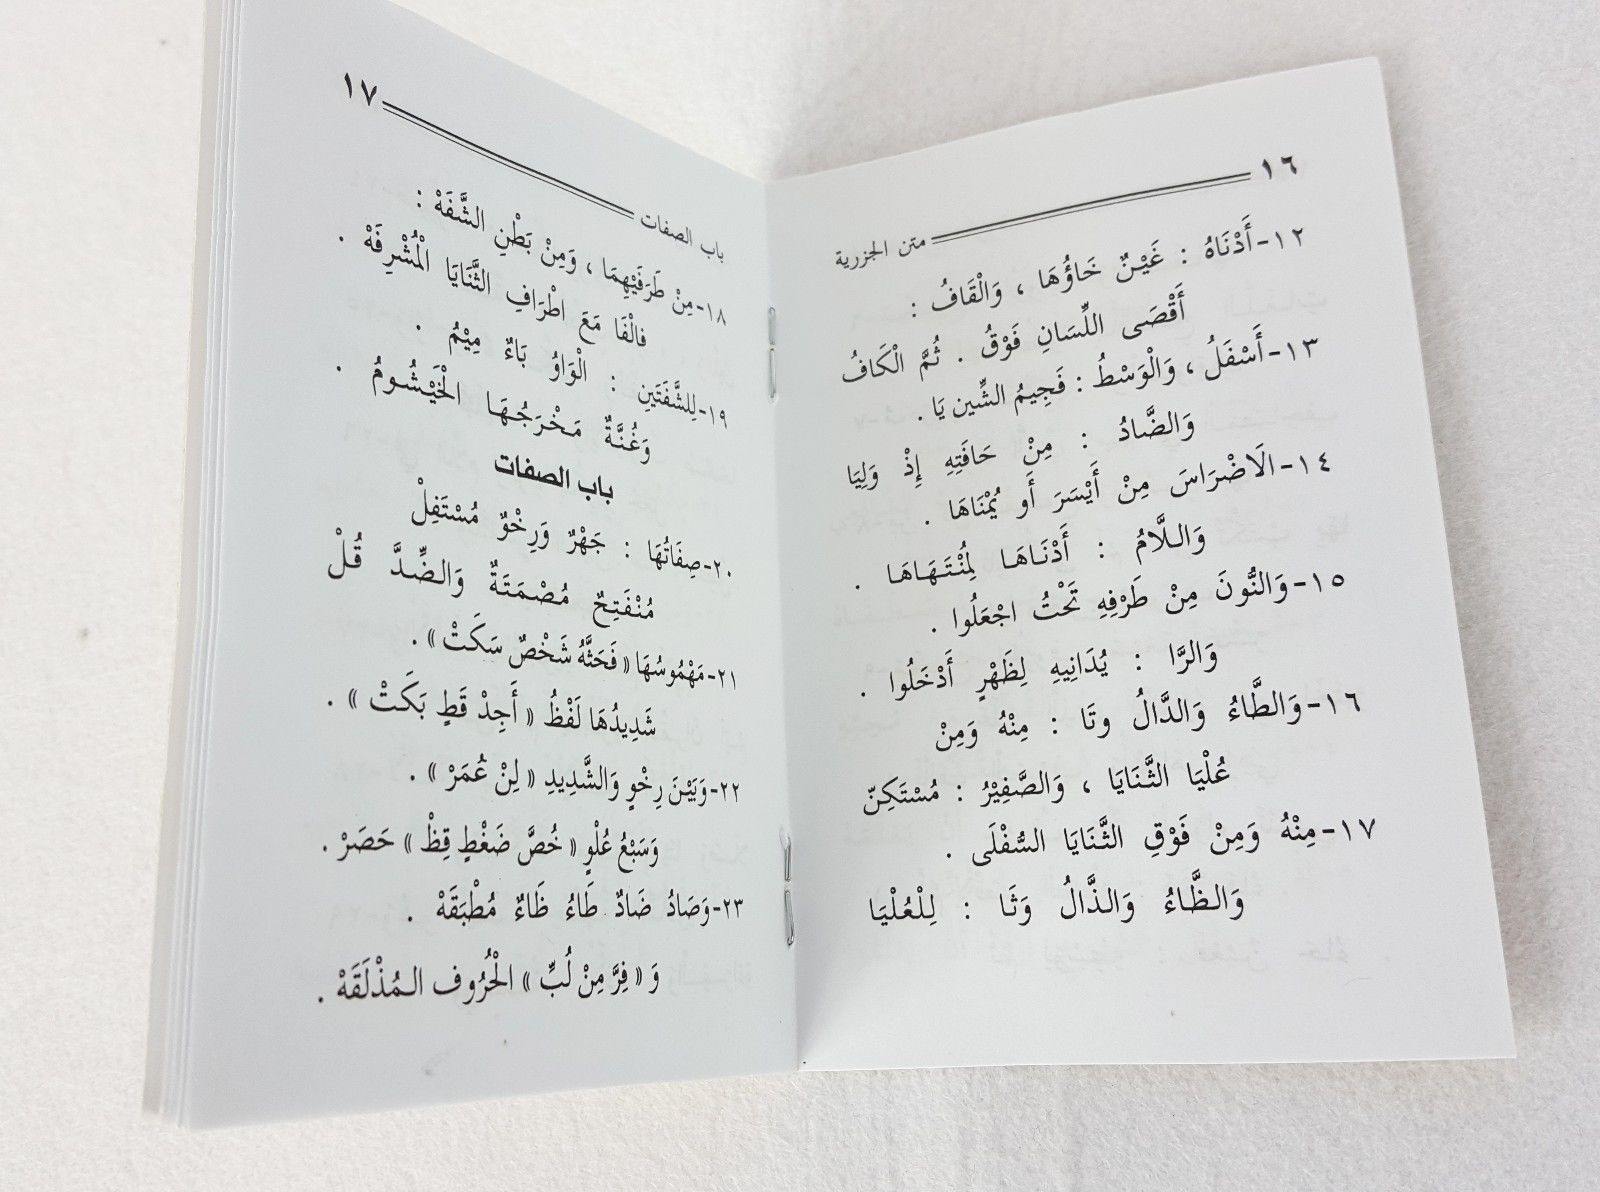 ١٦
متن الجزرية
١٢- أَدْنَاهُ : غَيْنٌ خَاؤُهَا ، وَالْقَافُ :
أَقْصَى اللِّسَانِ فَوْقُ . ثُمَّ الْكَافُ
١٣- أَسْفَلُ ، وَالْوَسْطُ : فَجِيمُ الشِّين يَا .
وَالضَّادُ : مِنْ حَافَتِهِ إِذْ وَلِيَا
١٤- الَاضْرَاسَ مِنْ أَيْسَرَ أَو يُمْنَاهَا .
وَاللَّامُ : أَدْنَاهَا لِمُنْتَهَاهَا .
١٥- وَالنُّونَ مِنْ طَرْفِهِ تَحْتُ اجْعَلُوا .
وَالرَّا : يُدَانِيهِ لِظَهْرٍ أَدْخَلُوا .
١٦- وَالطَّاءُ وَالدَّالُ وتَا : مِنْهُ وَمِنْ
عُلْيَا الثَّنَايَا ، وَالصَّفِيْرُ : مُسْتَكِنّ
١٧- مِنْهُ وَمِنْ فَوْقِ الثَّنَايَا السُّفْلَى .
وَالظَّاءُ وَالذَّالُ وَثَا : لِلْعُلْيَا
١٧
باب الصفات
١٨- مِنْ طَرَفَيْهِمَا ، وَمِنْ بَطْنِ الشَّفَهْ :
فالْفَا مَعَ اطْرَافِ الثَّنَايَا الْمُشْرِفَهْ .
١٩- لِلشَّفَتَينِ : الْوَاوُ بَاءٌ مِيْمُ .
وَغُنَّةٌ مَخْرَجُهَا الْخَيْشُومُ .
باب الصفات
٢٠- صِفَاتُهَا : جَهْرٌ وَرِخْوٌ مُسْتَفِلْ
مُنْفَتِحٌ مُصْمَتَةٌ وَالضِّدَّ قُلْ
٢١- مَهْمُوسُهَا « فَحَثَّهُ شَخْصٌ سَكَتْ » .
شَدِيدُهَا لَفْظُ « أَجِدْ قَطٍ بَكَتْ » .
٢٢- وَبَيْنَ رِخْوٍ وَالشَّدِيدِ « لِنْ عُمَرْ » .
وَسَبْعُ عُلْوٍ « خُصَّ ضَغْطٍ قِظْ » حَصَرْ .
٢٣- وَصَادُ ضَادٌ طَاءُ ظَاءٌ مُطْبَقَهْ .
وَ « فِرَّ مِنْ لُبِّ » الْحُرُوف الـمُذْلَقَهْ .